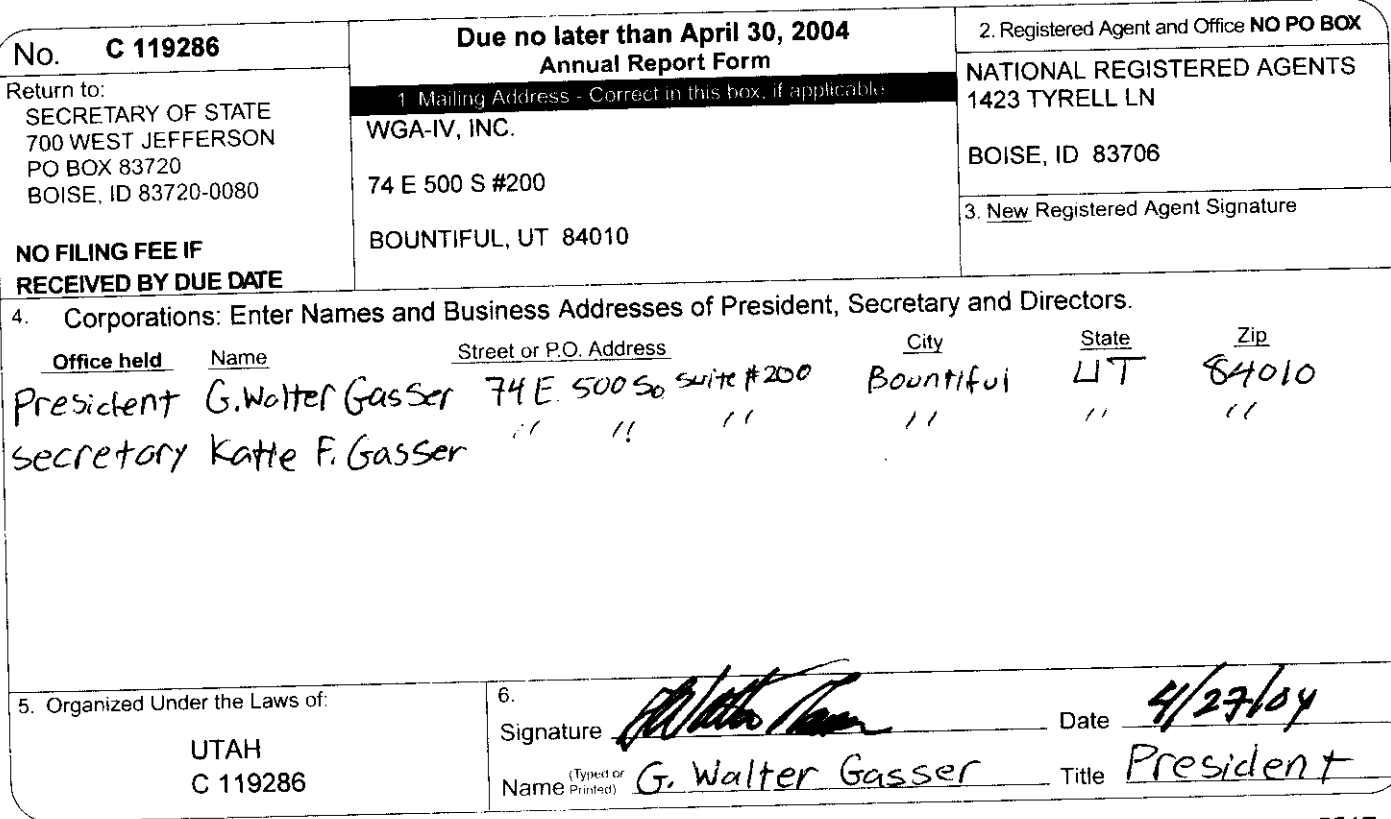 No. C 119286
Return to:
SECRETARY OF STATE
700 WEST JEFFERSON
PO BOX 83720
BOISE, ID 83720-0080
NO FILING FEE IF
RECEIVED BY DUE DATE
Due no later than April 30, 2004
Annual Report Form
1 Mailing Address - Correct in this box, if applicable
WGA-IV, INC.
74 E 500 S #200
BOUNTIFUL, UT 84010
2. Registered Agent and Office NO PO BOX
NATIONAL REGISTERED AGENTS
1423 TYRELL LN
BOISE, ID 83706
3. New Registered Agent Signature
4. Corporations: Enter Names and Business Addresses of President, Secretary and Directors.
Office held Name Street or P.O. Address City State Zip
President G. Walter Gasser 74 E. 500 So suite #200 Bountiful UT 84010
secretary Katie F. Gasser " " " " " "
5. Organized Under the Laws of:
UTAH
C 119286
6.
Signature Date 4/27/04
Name (Typed or Printed) G. Walter Gasser Title President